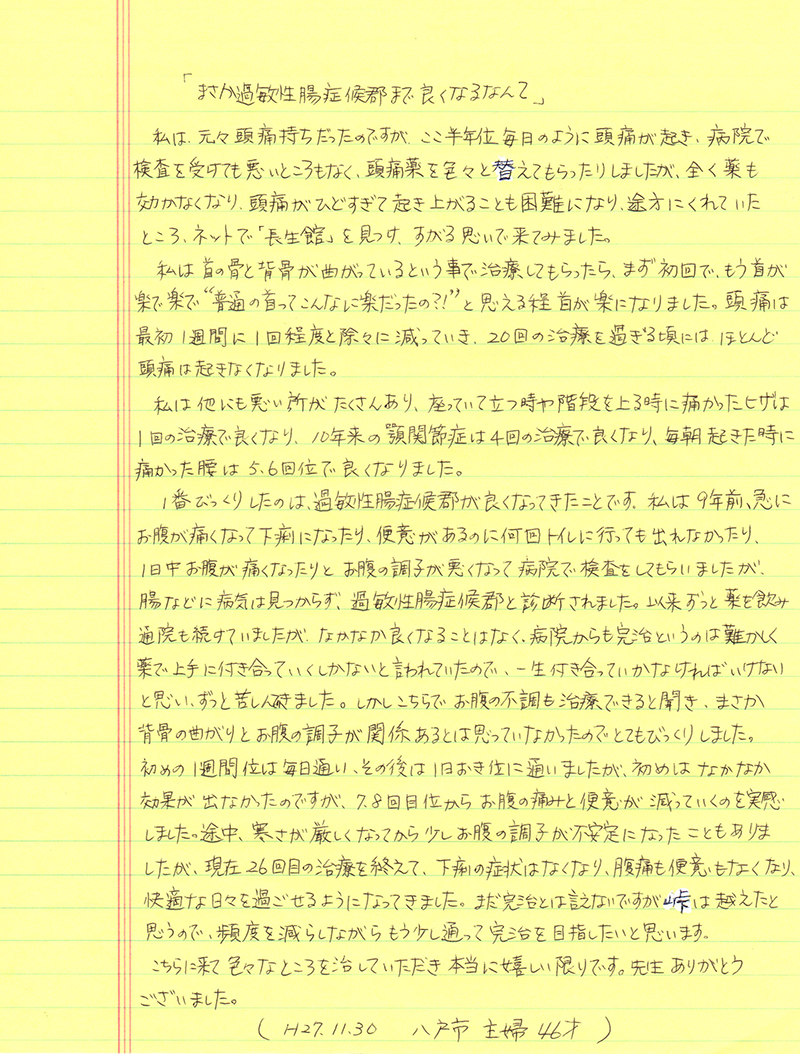 「まさか過敏性腸症候郡まで良くなるなんて」
私は、元々頭痛持ちだったのですが、ここ半年位毎日のように頭痛が起き、病院で
検査を受けても悪いところもなく、頭痛薬を色々と替えてもらったりしましたが、全く薬も
効かなくなり、頭痛がひどすぎて起き上がることも困難になり、途方にくれていた
ところ、ネットで「長生館」を見つけ、すがる思いで来てみました。
私は首の骨と背骨が曲がっているという事で治療してもらったら、まず初回で、もう首が
楽で楽で“普通の首ってこんなに楽だったの?!”と思える程首が楽になりました。頭痛は
最初1週間に1回程度と除々に減っていき、20回の治療を過ぎる頃には、ほとんど
頭痛は起きなくなりました。
私は他にも悪い所がたくさんあり、座っていて立つ時や階段を上る時に痛かったヒザは
1回の治療で良くなり、10年来の顎関節症は4回の治療で良くなり、毎朝起きた時に
痛かった腰は5、6回位で良くなりました。
1番びっくりしたのは、過敏性腸症候郡が良くなってきたことです。私は9年前、急に
お腹が痛くなって下痢になったり、便意があるのに何回トイレに行っても出れなかったり、
1日中お腹が痛くなったりとお腹の調子が悪くなって病院で検査をしてもらいましたが、
腸などに病気は見つからず、過敏性腸症候郡と診断されました。以来ずっと薬を飲み
通院も続けていましたが、なかなか良くなることはなく、病院からも完治というのは難かしく
薬で上手に付き合っていくしかないと言われていたので、一生付き合っていかなければいけない
と思い、ずっと苦しんできました。しかしこちらでお腹の不調も治療できると聞き、まさか
背骨の曲がりとお腹の調子が関係あるとは思っていなかったのでとてもびっくりしました。
初めの1週間位は毎日通い、その後は1日おき位に通いましたが、初めはなかなか
効果が出なかったのですが、7、8回目位からお腹の痛みと便意が減っていくのを実感
しました。途中、寒さが厳しくなってから少しお腹の調子が不安定になったこともありま
したが、現在26回目の治療を終えて、下痢の症状はなくなり、腹痛も便意もなくなり、
快適な日々を過ごせるようになってきました。まだ完治とは言えないですが峠は越えたと
思うので、頻度を減らしながらもう少し通って完治を目指したいと思います。
こちらに来て色々なところを治していただき本当に嬉しい限りです。先生ありがとう
ございました。
(H27.11.30 八戸市 主婦 46才)